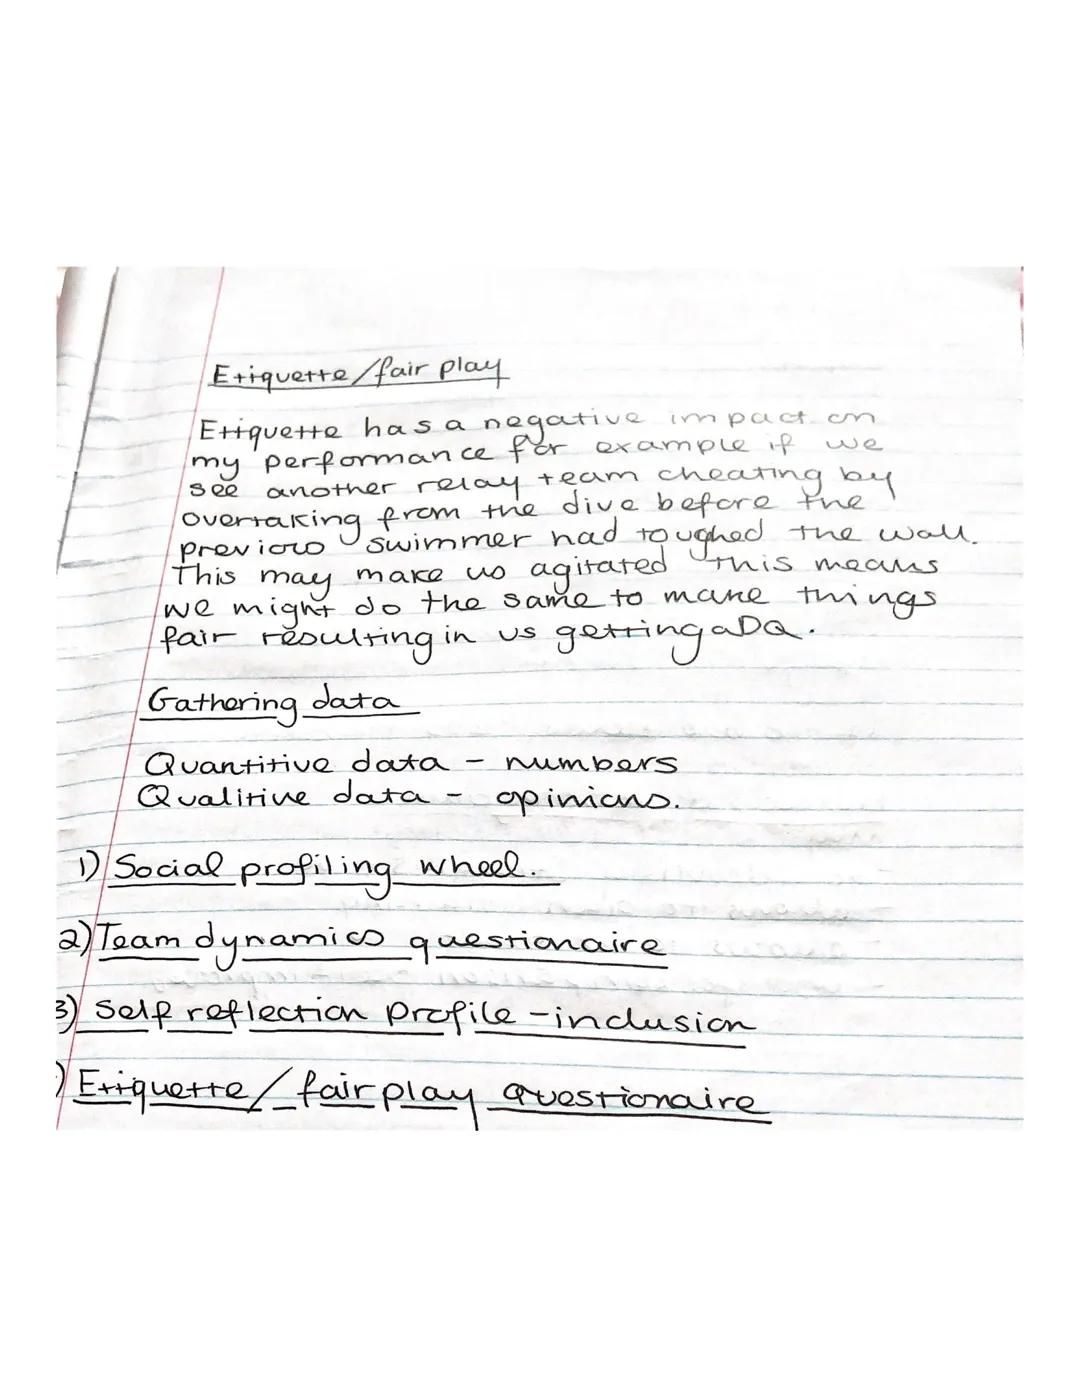 Etiquette/fair play
Etiquette has a negative impact on
my performance for example if we
see another relay team cheating by
overtaking from the dive before the
previous swimmer had toughed the wall.
This may make us agitated this means
we might do the same to make things
fair resulting in us getting a DQ.
Gathering data
Quantitive data - numbers
Qualitive data - opinions.
1) Social profiling wheel.
2) Team dynamics questionaire
3) Self reflection profile - inclusion
) Etiquette/fair play questionaire